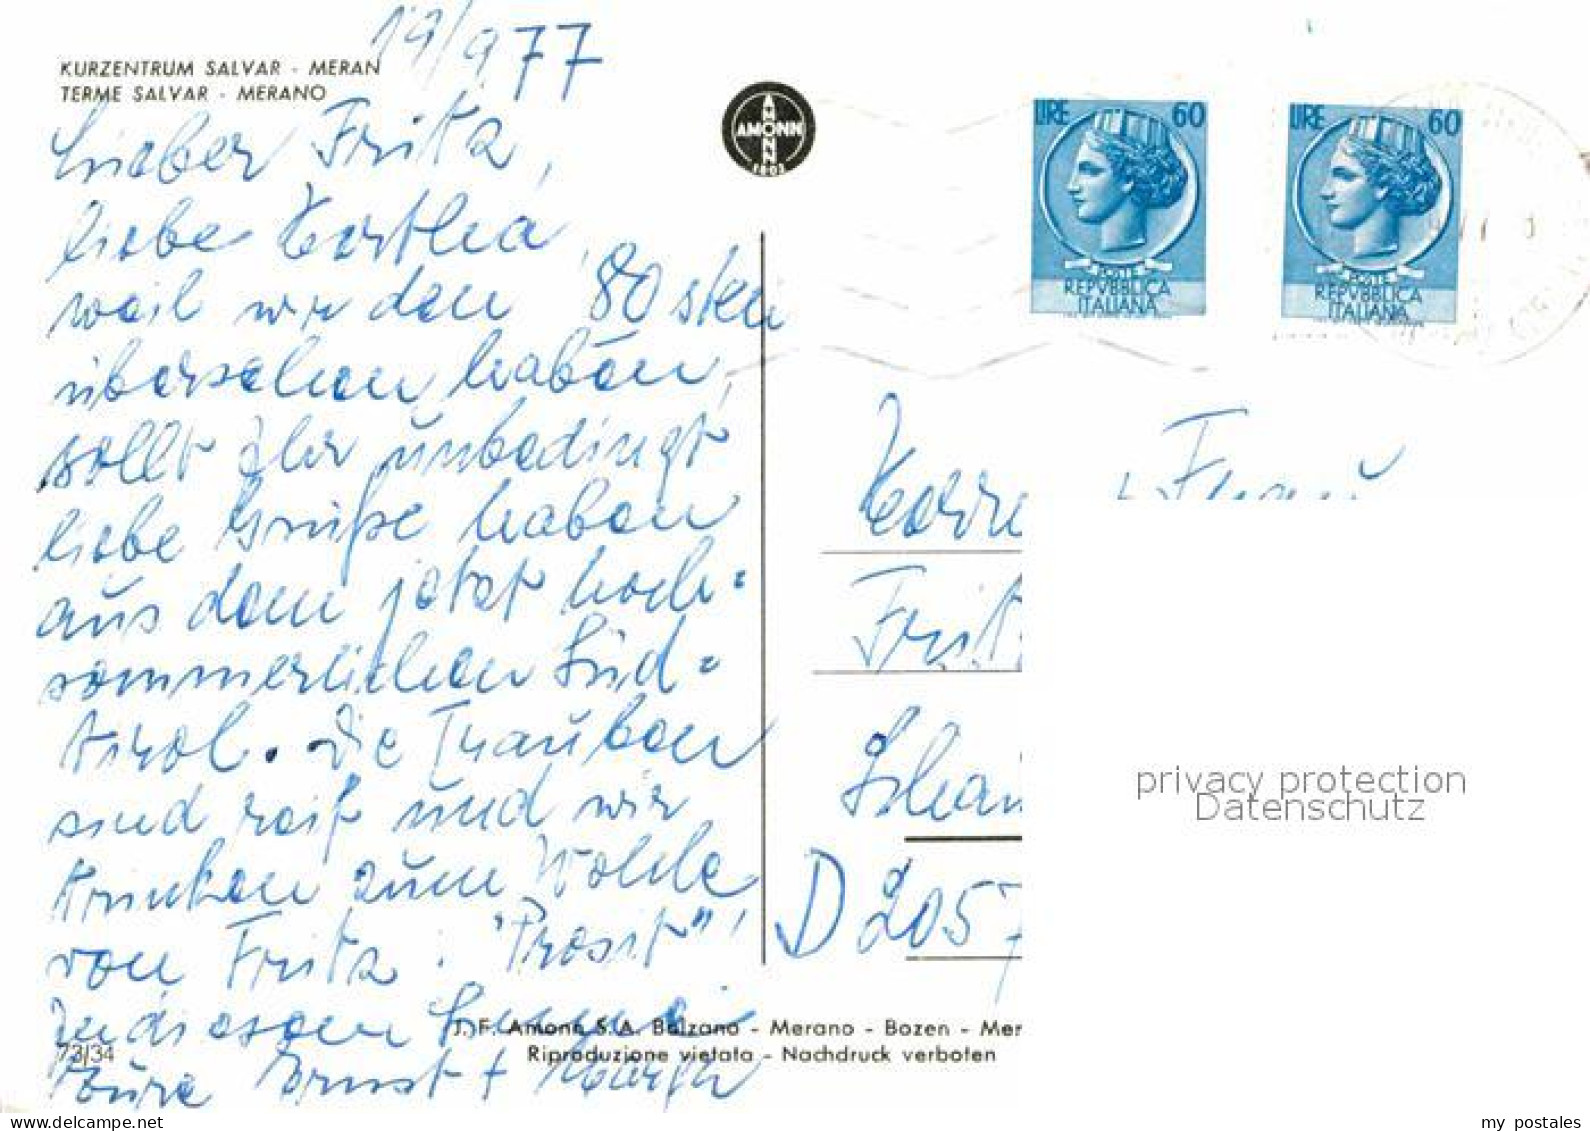 19/9 77
KURZENTRUM SALVAR - MERAN
TERME SALVAR - MERANO
Lieber Fritz,
liebe Hertha,
weil wir den 80sten
übersehen haben,
sollt Ihr unbedingt
liebe Grüße haben
aus dem jetzt hoch=
sommerlichen Süd=
tirol. Die Trauben
sind reif und wir
trinken zum Wohle
von Fritz: "Prosit"!
In diesem Sinne
Eure Ernst +
AMONN
AMONN
1802
LIRE 60
POSTE
REPVBBLICA
ITALIANA
LIRE 60
POSTE
REPVBBLICA
ITALIANA
Herrn
+ Frau
Frit
D 2057
privacy protection
Datenschutz
J. F. Amonn S.A. Bolzano - Merano - Bozen - Mer
73/34
Riproduzione vietata - Nachdruck verboten
my postales